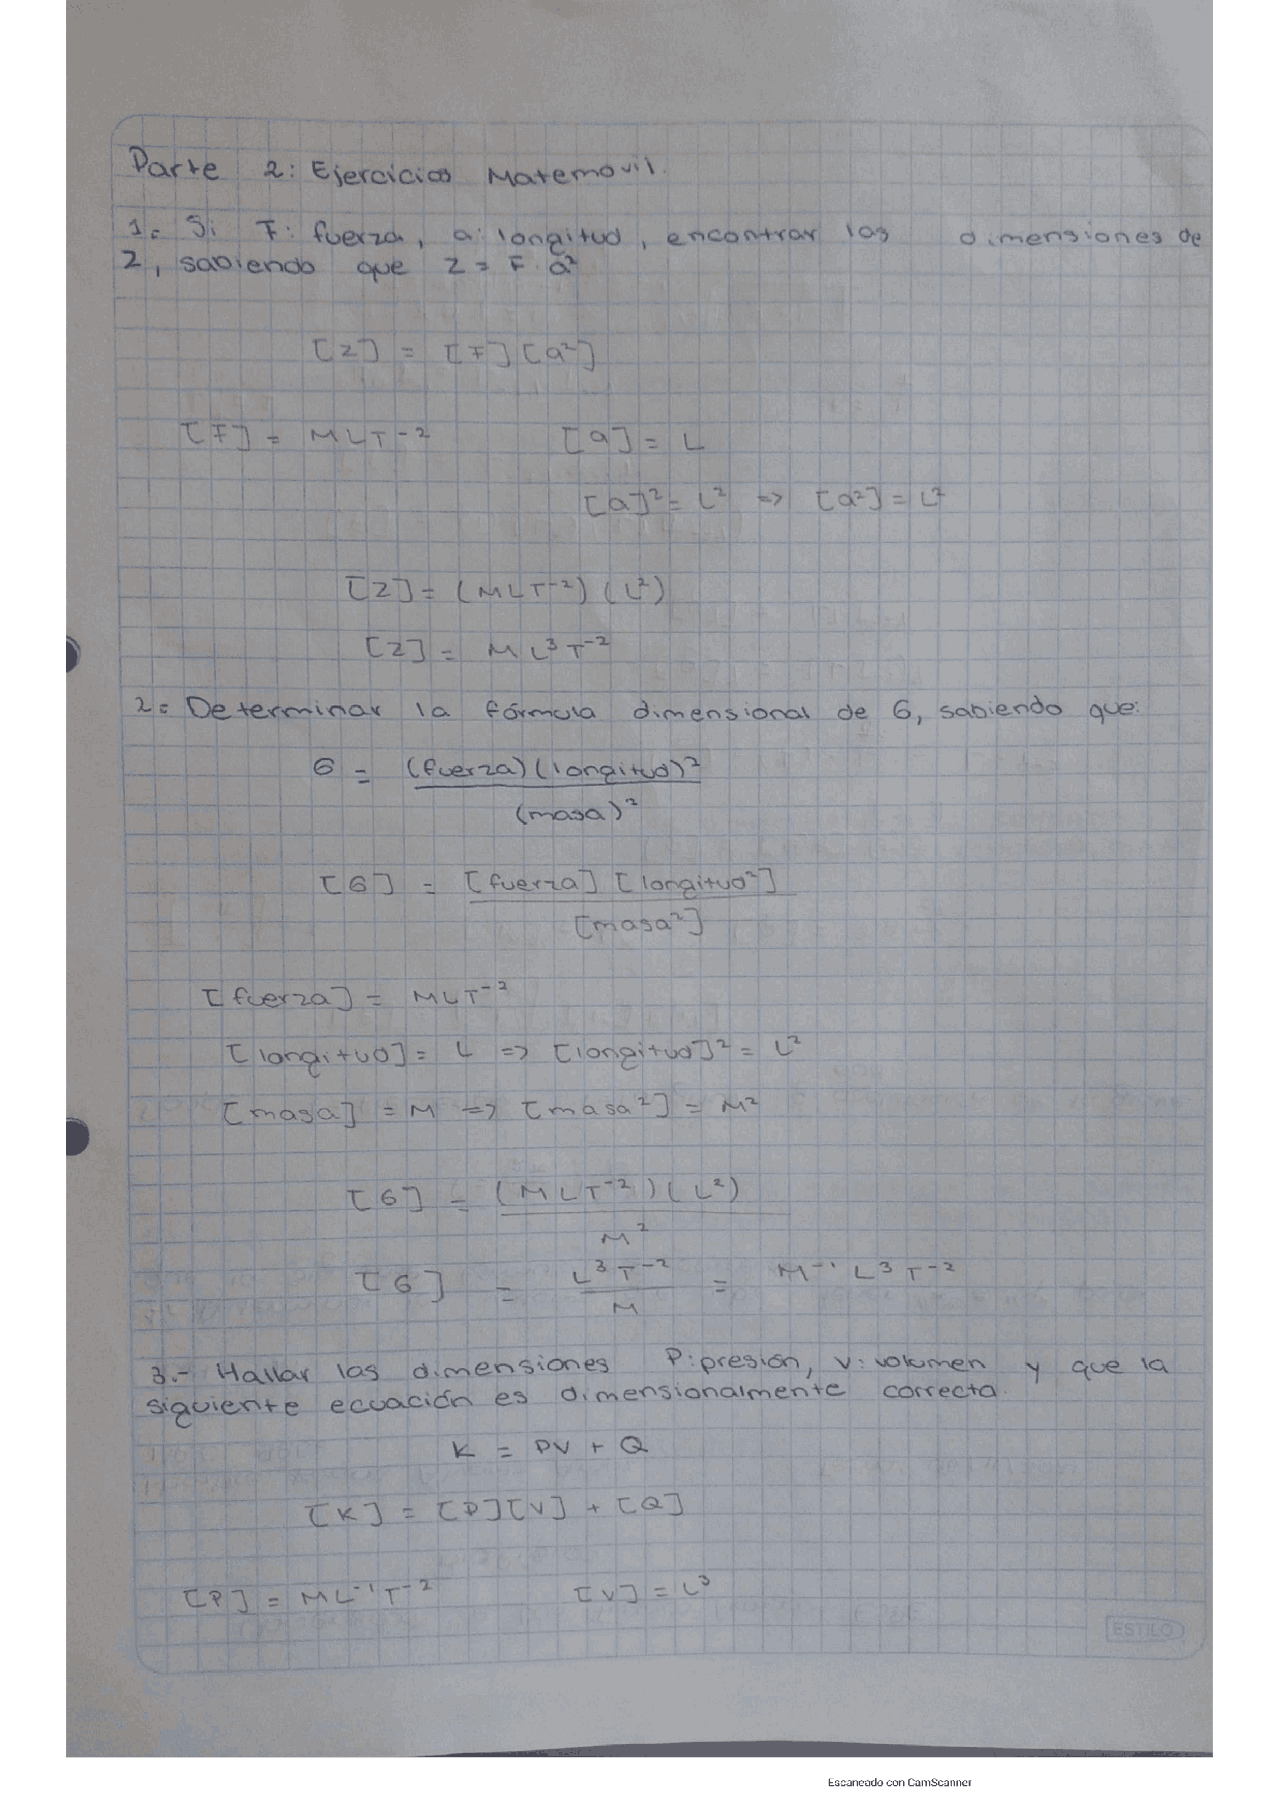 Parte 2: Ejercicios Matemovil.
1. Si F: fuerza, a: longitud, encontrar las dimensiones de
Z, sabiendo que Z = F. a²
[Z] = [F][a²]
[F] = MLT⁻² [a] = L
[a]² = L² => [a²] = L²
[Z] = (MLT⁻²)(L²)
[Z] = ML³T⁻²
2. Determinar la fórmula dimensional de G, sabiendo que:
G = (fuerza)(longitud)²
(masa)²
[G] = [fuerza][longitud²]
[masa²]
[fuerza] = MLT⁻²
[longitud] = L => [longitud]² = L²
[masa] = M => [masa²] = M²
[G] = (MLT⁻²)(L²)
M²
[G] = L³T⁻² = M⁻¹L³T⁻²
M
3.- Hallar las dimensiones P: presión, V: volumen y que la
siguiente ecuación es dimensionalmente correcta.
K = PV + Q
[K] = [P][V] + [Q]
[P] = ML⁻¹T⁻² [V] = L³
ESTILO
Escaneado con CamScanner